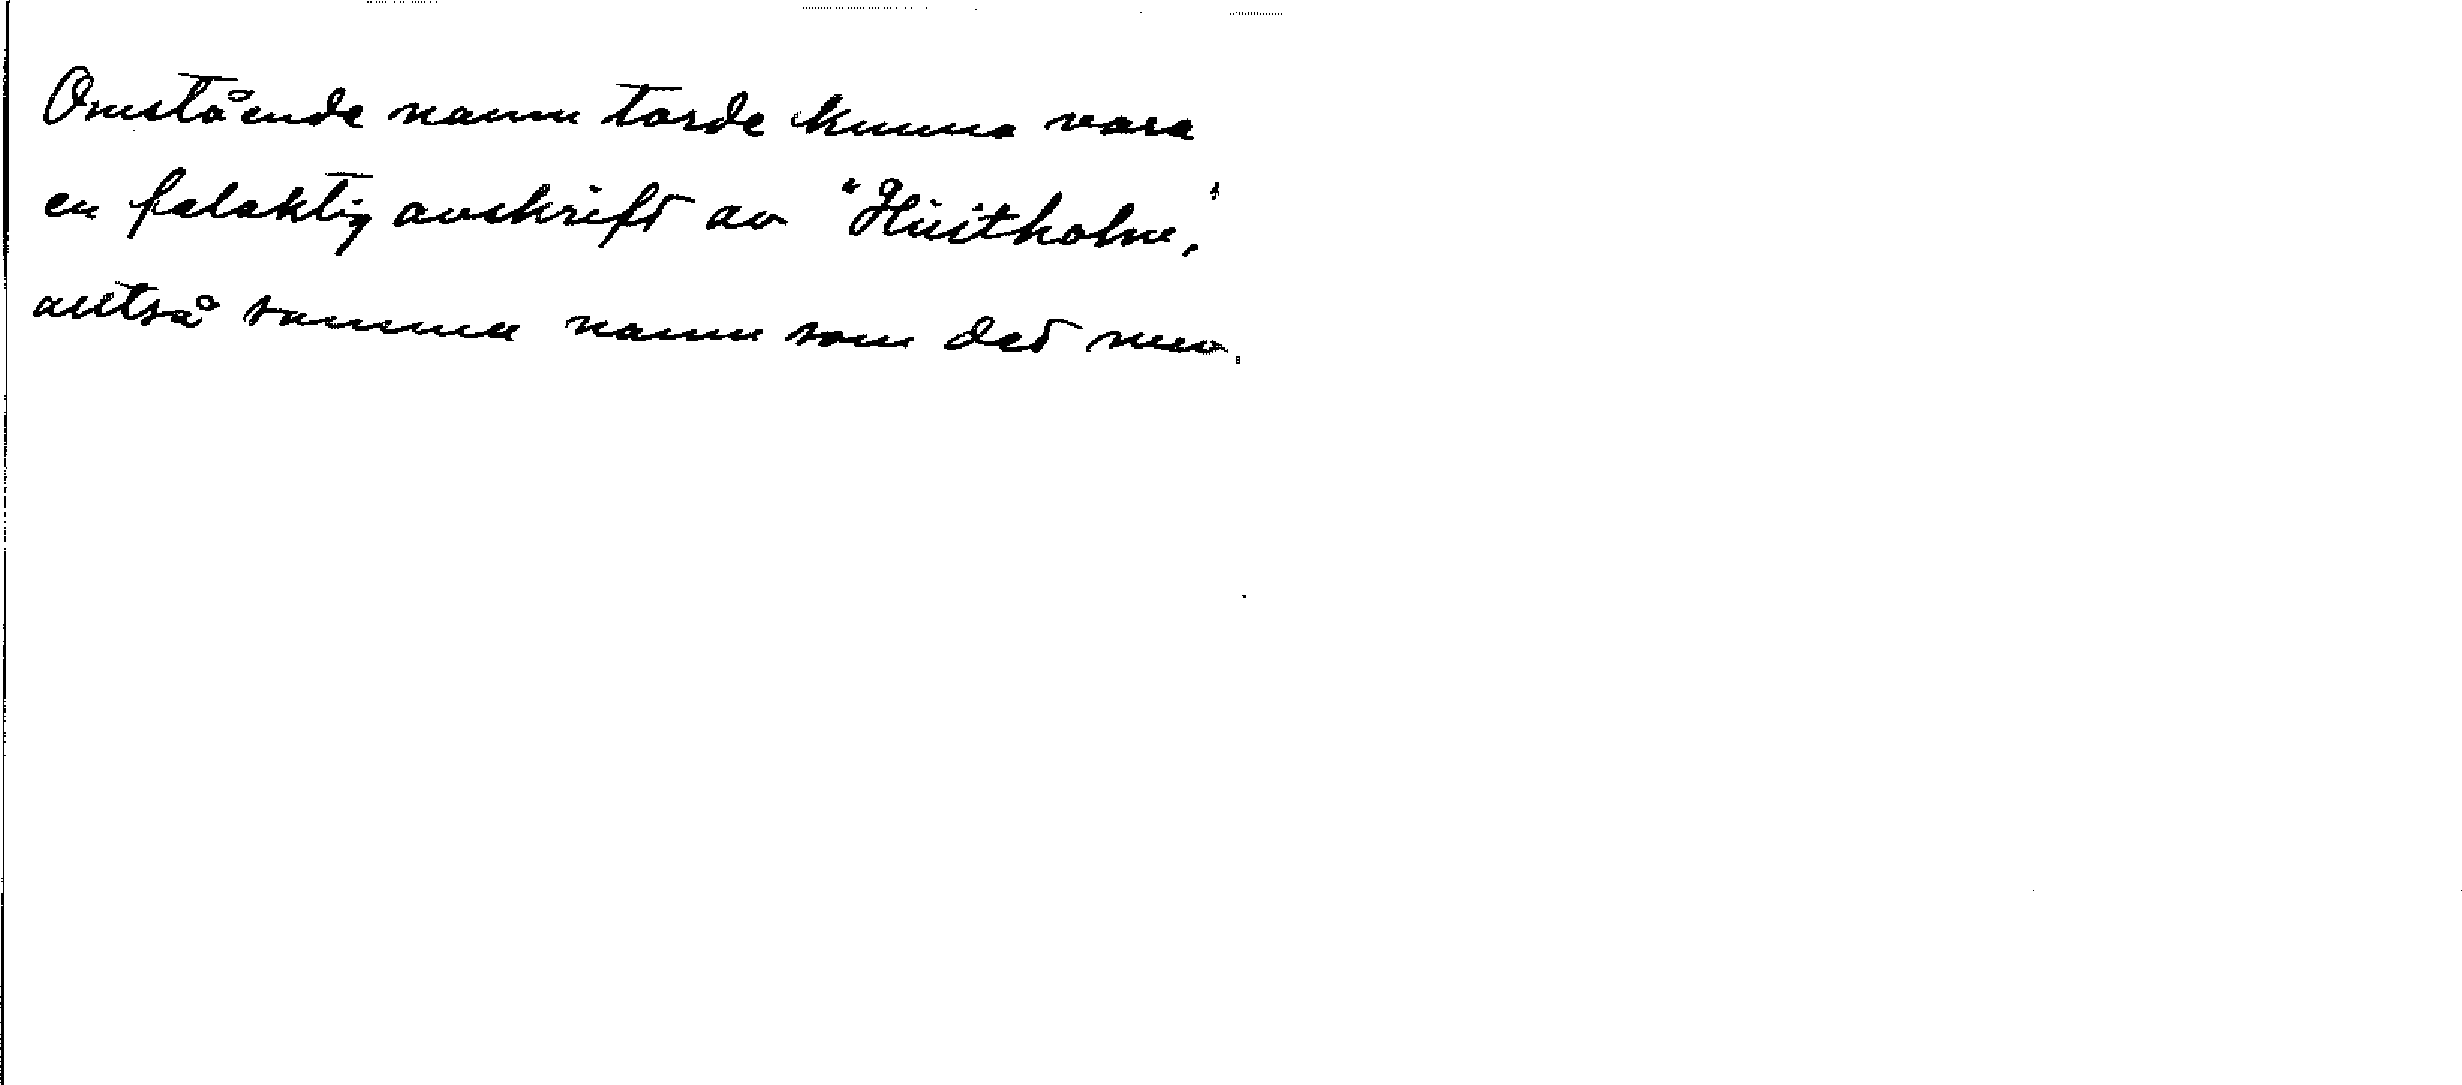 Omstående namn torde kunna vara
en felaktig avskrift av "Huitholm",
alltså samma namn som det nuv.